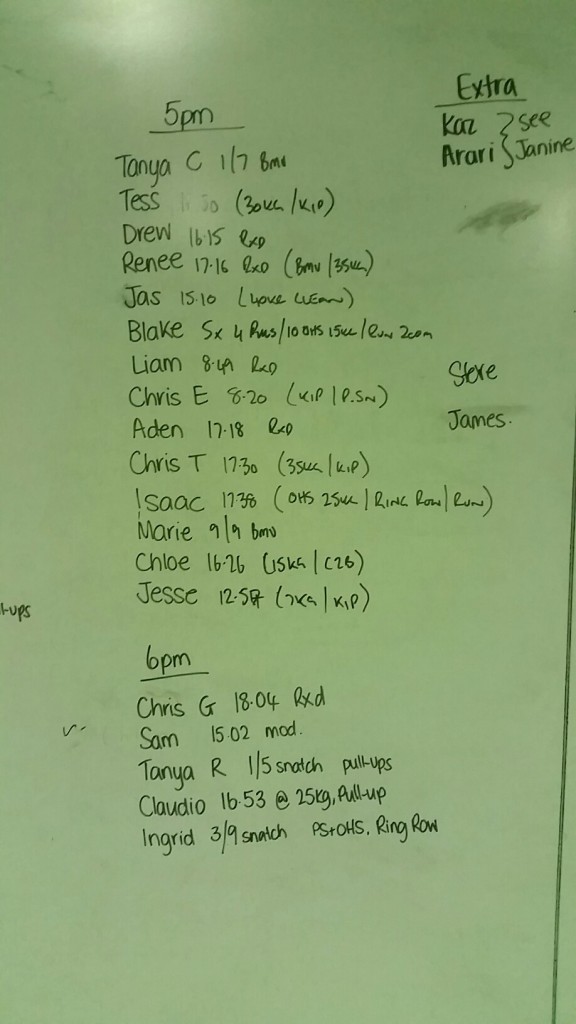 5pm
Tanya C 1/7 Bmu
Tess (30KG/KIP)
Drew 16.15 RxD
Renee 17.16 RxD (Bmu/35KG)
Jas 15.10
Blake 5x 4 /10 OHS 15KG/Run 200m
Liam 8.49 RxD
Chris E 8.20 (KIP/P.SN)
Aden 17.18 RxD
Chris T 17.30 (35KG/KIP)
Isaac 17.38 (OHS 25KG/RING ROW/RUN)
Marie 9/9 Bmu
Chloe 16.26 (15KG/C2B)
Jesse 12.57 (7KG/KIP)
6pm
Chris G 18.04 Rxd
Sam 15.02 mod.
Tanya R 1/5 snatch pull-ups
Claudio 16.53 @ 25kg, Pull-up
Ingrid 3/9 snatch PS+OHS. Ring Row
Extra
Kaz } see
Arari } Janine
Steve
James.
l-ups